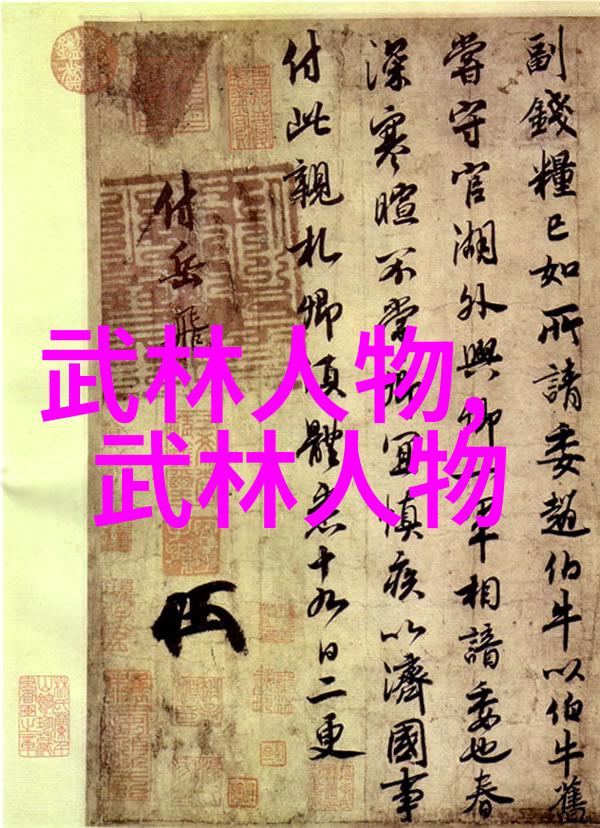 副錢糧已如所請委趙伯牛以伯牛舊
嘗守官湖外與卿一軍相諳委也春
深寒暄不常卿宜慎疾以濟國事
付此親札卿須體悉十九日二更
付岳飛
武林人物,
武林人物